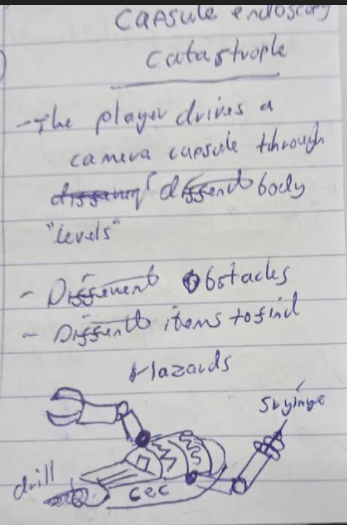 Capsule endoscopy
catastrophe
- The player drives a
camera capsule through
different body
"levels"
- Different obstacles
- Different items to find
Hazards
Syringe
drill
CEC